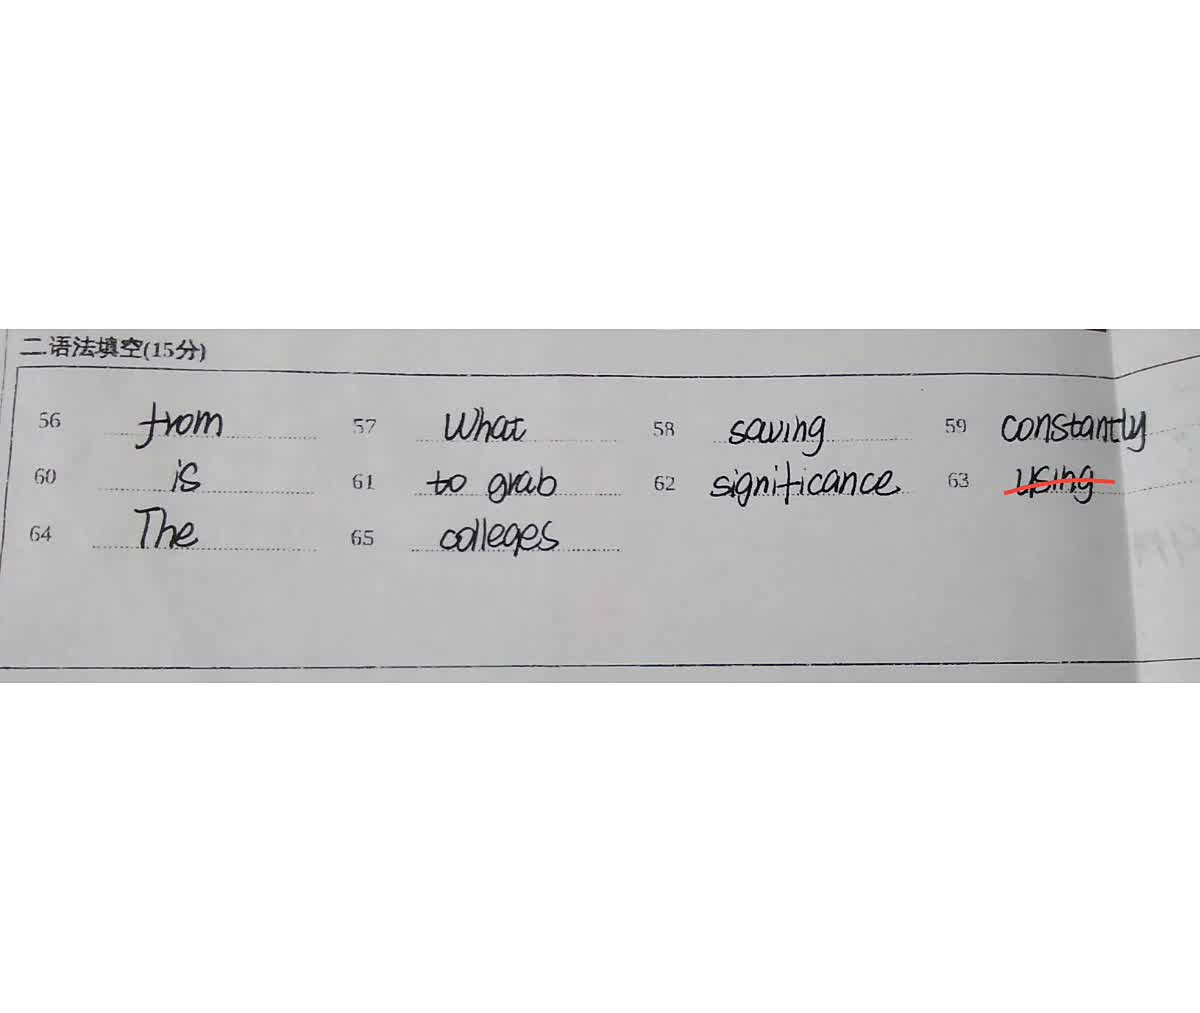 二.语法填空(15分)
56 from 57 What 58 saving 59 constantly
60 is 61 to grab 62 significance 63 using
64 The 65 colleges